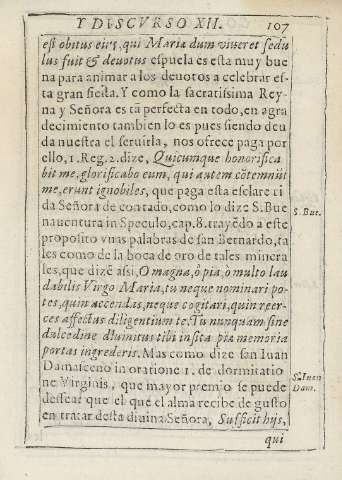 Y DISCVRSO XII. 107
est obitus eius, qui Maria dum viueret sedu
lus fuit & deuotus espuela es esta muy bue
na para animar a los deuotos a celebrar es-
ta gran fiesta. Y como la sacratissima Rey-
na y Señora es tã perfecta en todo, en agra
decimiento tambien lo es pues siendo deu
da nuestra el seruirla, nos ofrece paga por
ello, 1. Reg. 2. dize, Quicumque honorifica
bit me, glorificabo eum, qui autem cõtemniũt
me, erunt ignobiles, que paga esta esclare ci
da Señora de contado, como lo dize S. Bue
nauentura in Speculo, cap. 8. trayẽdo a este
proposito vnas palabras de san Bernardo, ta
les como de la boca de oro de tales minera
les, que dizẽ assi, O magna, ò pia, ò multo lau
dabilis Virgo Maria, tu neque nominari po-
tes, quin accendas, neque cogitari, quin recr-
ces affectus diligentium te, Tu nunquam sine
dulcedine diuinitus tibi insita piæ memoria
portas ingrederis. Mas como dize san Iuan
Damasceno in oratione 1. de dormitatio-
ne Virginis, que mayor premio se puede
dessear que el que el alma recibe de gusto
en tratar desta diuina Señora, Sufficit hijs,
qui
S. Bue.
S. Iuan
Dam.